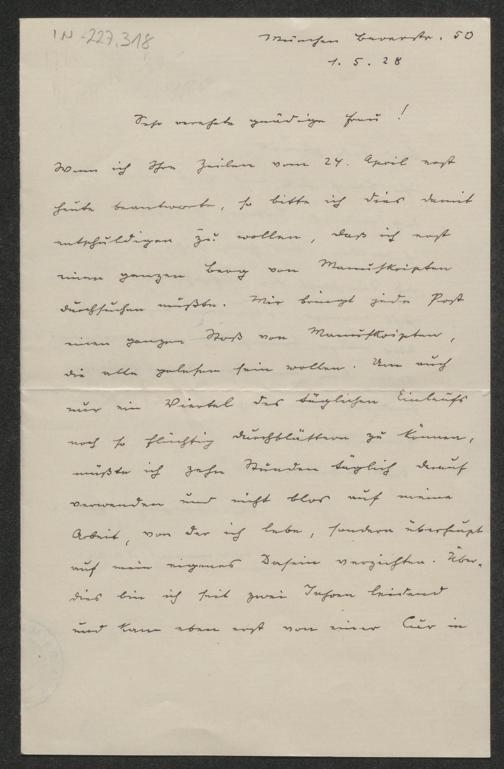 IN-227.318
München Bauerstr. 50
1. 5. 28
Sehr verehrte gnädige Frau!
Wenn ich Ihre Zeilen vom 24. April erst
heute beantworte, so bitte ich dies damit
entschuldigen zu wollen, daß ich erst
einen ganzen Berg von Manuskripten
durchsuchen mußte. Mir bringt jede Post
einen ganzen Stoß von Manuskripten,
die alle gelesen sein wollen. Um auch
nur ein Viertel des täglichen Einlaufs
noch so flüchtig durchblättern zu können,
müßte ich zehn Stunden täglich darauf
verwenden und nicht blos auf meine
Arbeit, von der ich lebe, sondern überhaupt
auf mein eigenes Dasein verzichten. Über-
dies bin ich seit zwei Jahren leidend
und kam eben erst von einer Cur in